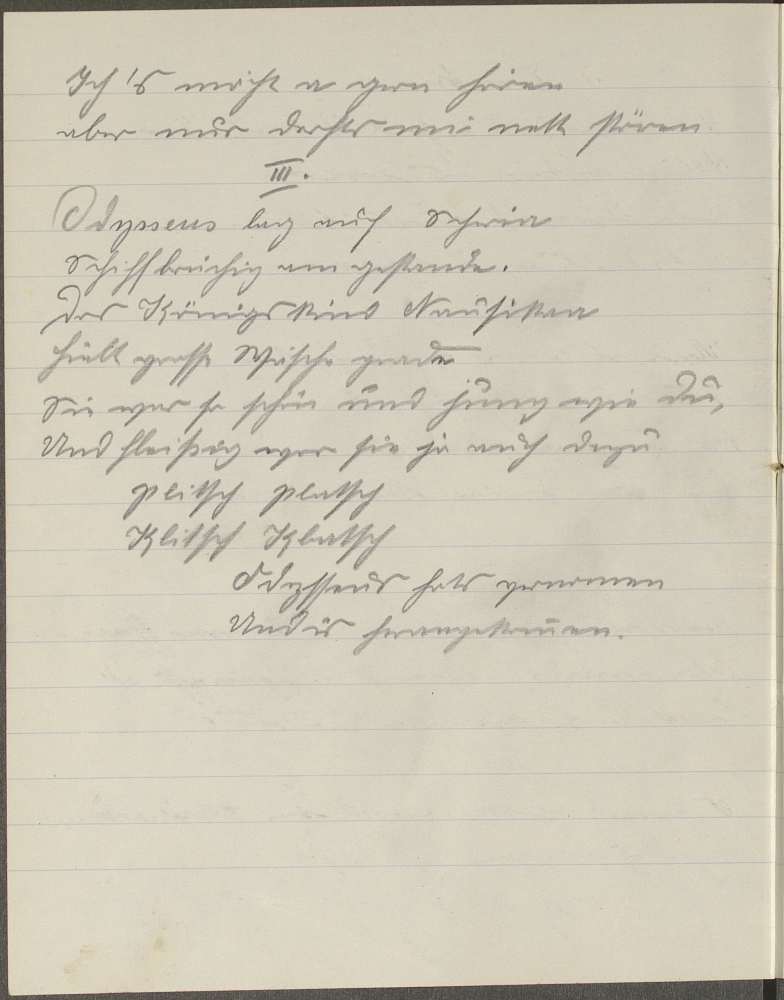 Ich's möcht a gern hören
aber nur derfts mi nett stören
III.
Odysseus lag auf Scheria
Schiffbrüchig am gestande.
Das Königskind Nausikaa
hielt grosse Wäsche grade
Sie war so schön und jung wie du,
Und fleißig war sie ja auch dazu
plitsch platsch
Klitsch Klatsch
Odysseus hats vernomen
Und is herangekom̅en.